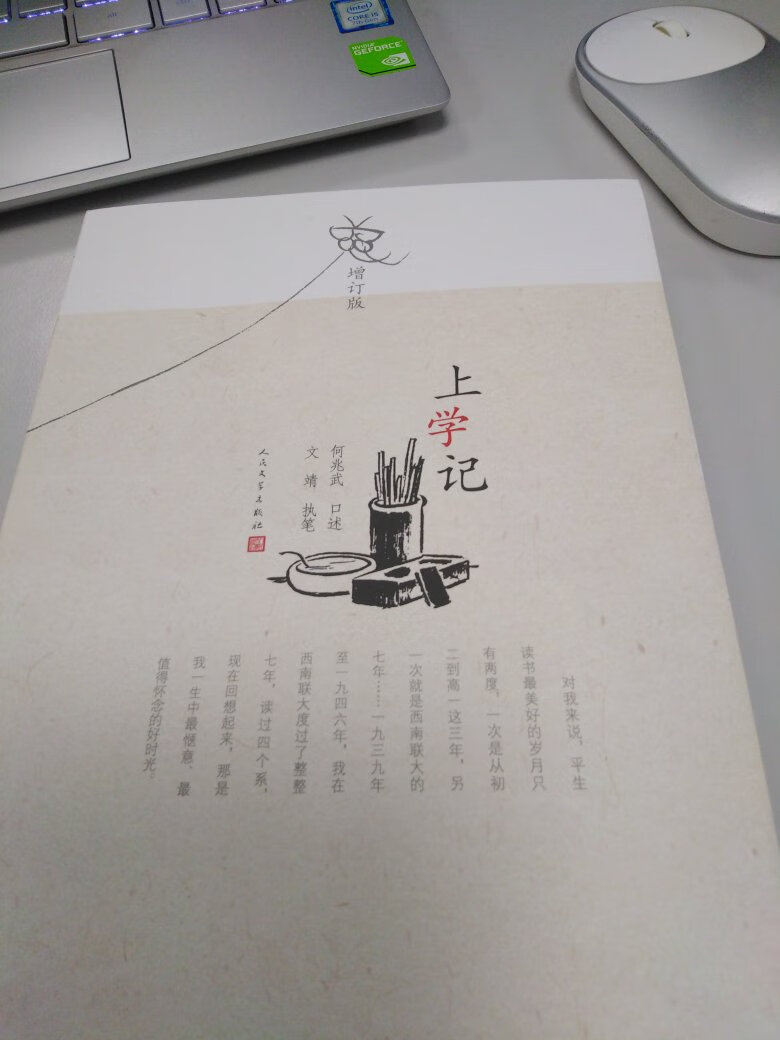 alt
intel
CORE i5
7th Gen
NVIDIA
GEFORCE
增订版
上学记
何兆武 口述
文 靖 执笔
人民文学出版社
对我来说，平生
读书最美好的岁月只
有两度，一次是从初
二到高一这三年，另
一次就是西南联大的
七年……一九三九年
至一九四六年，我在
西南联大度过了整整
七年，读过四个系，
现在回想起来，那是
我一生中最惬意、最
值得怀念的好时光。